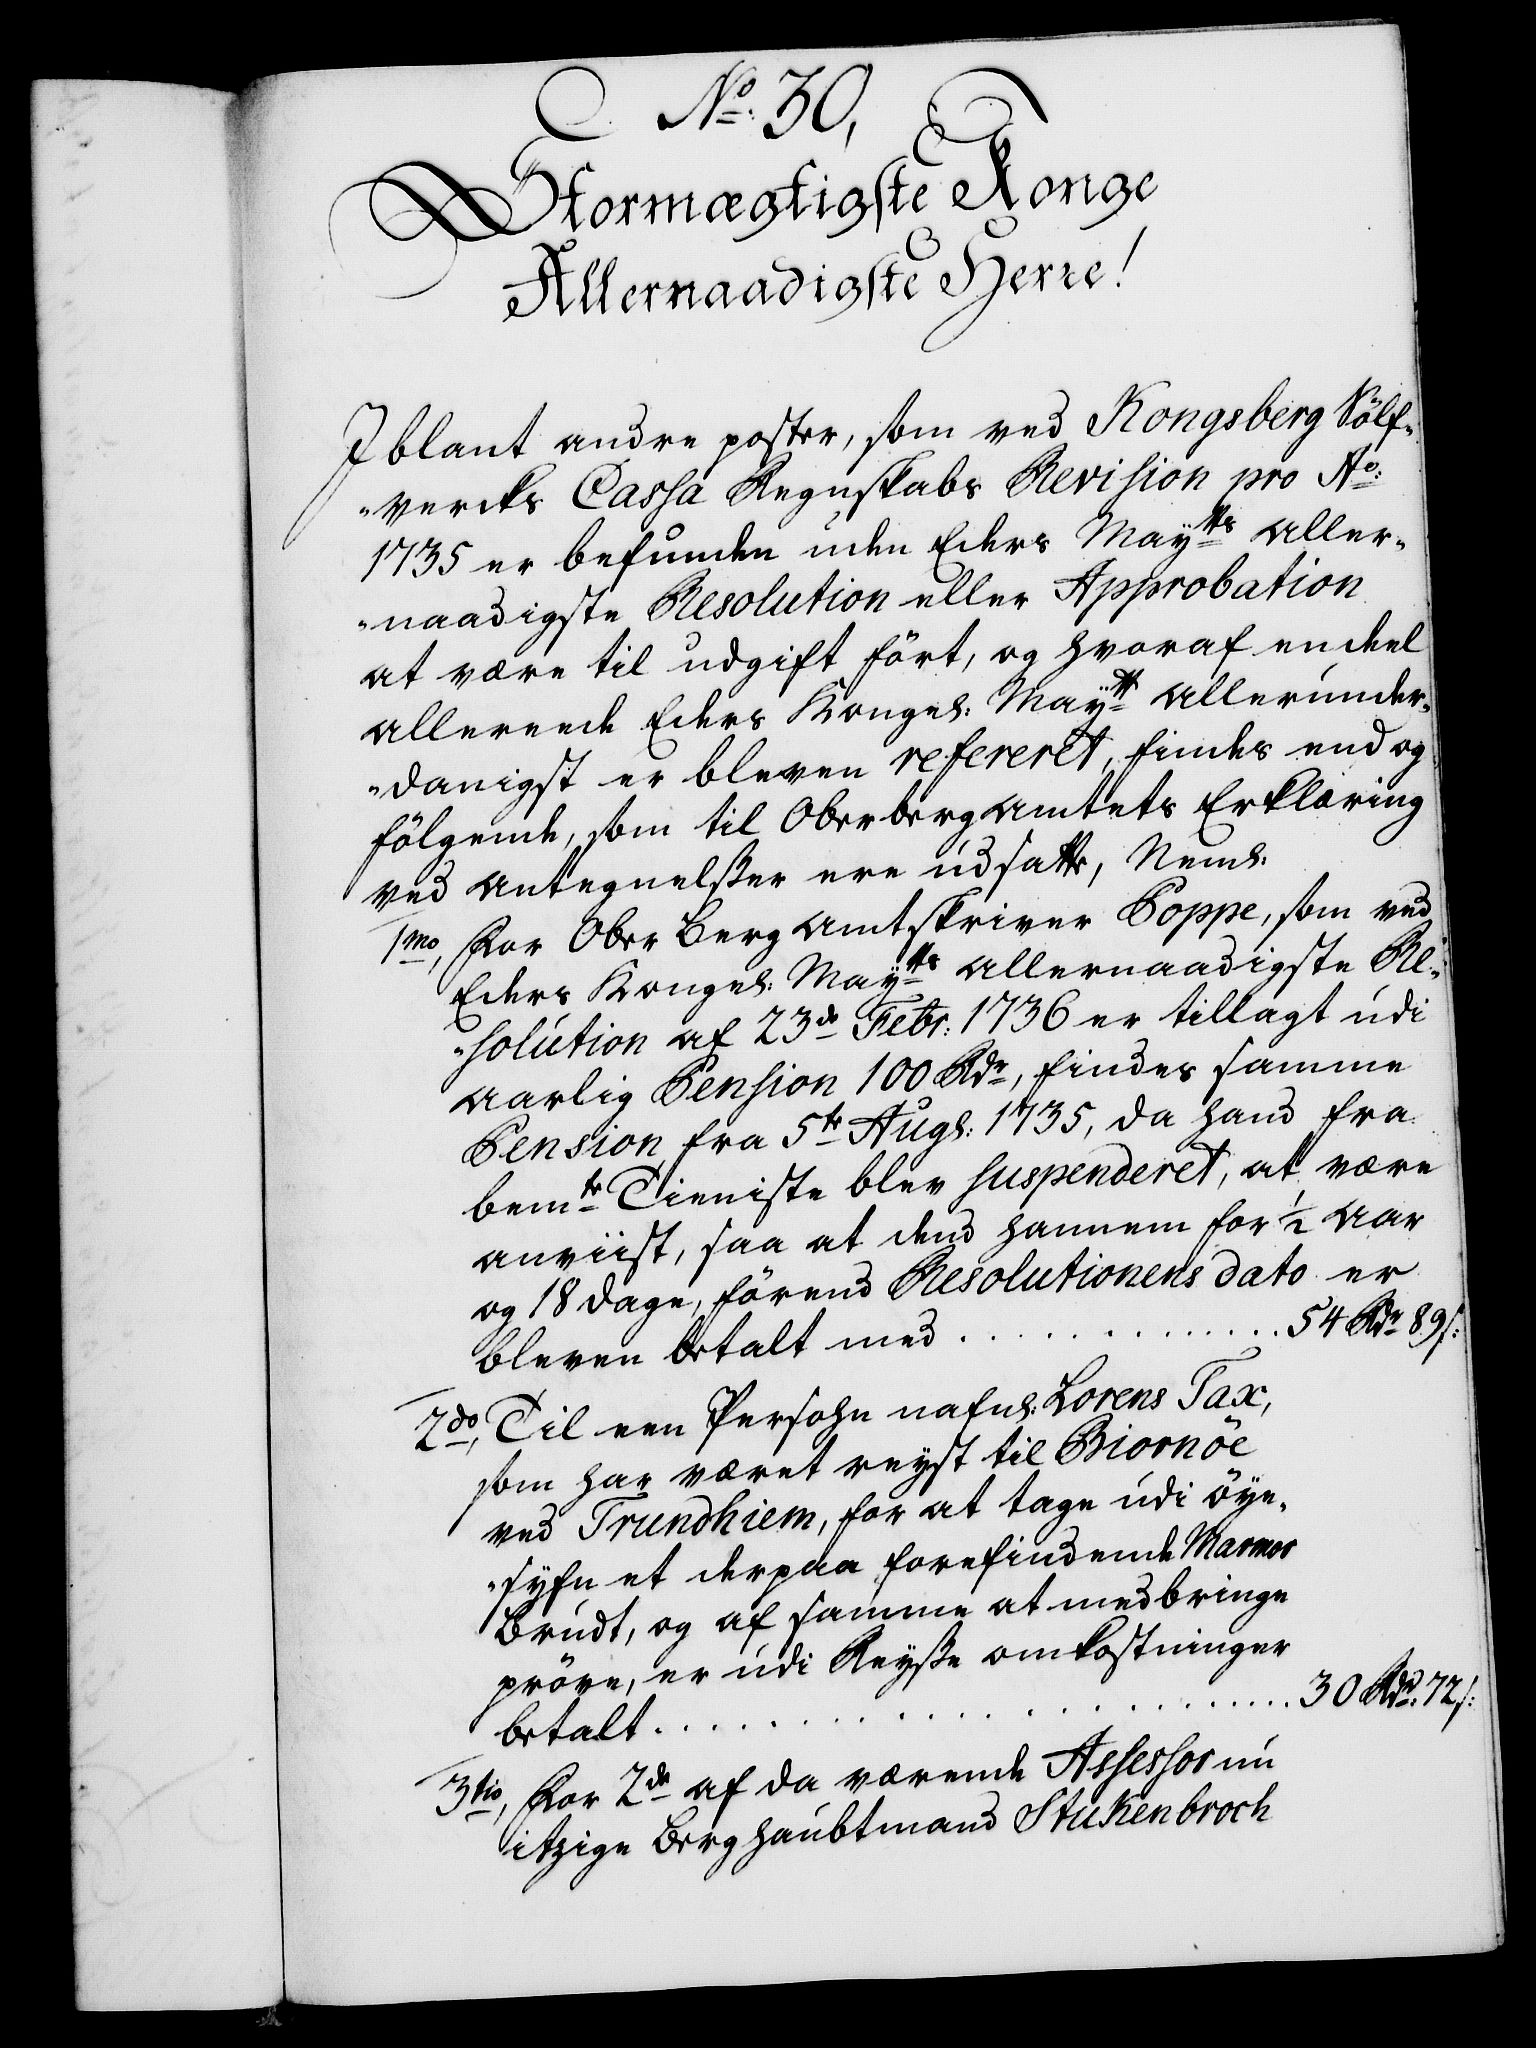 No: 30,
Stormægtigste Konge
Allernaadigste Herre!
Iblant andre poster, som ved Kongsberg Sölf-
-vercks Cassa Regnskabs Revision pro Ao:
1735 er befunden uden Eders Maytts Aller-
-naadigste Resolution eller Approbation
at være til udgift fört, og hvoraf endeel
allereede Eders Kongel: Maytt allerunder-
-danigst er bleven refereret, findes endog
fölgende, som til OberbergAmtets Erklæring
ved Antegnelsser ere udsatte, Neml:
1mo, For OberBergAmtskriver Poppe, som ved
Eders Kongel: Maytts allernaadigste Re-
-solution af 23de Febr: 1736 er tillagt udi
aarlig Pension 100 Rdr, findes samme
Pension fra 5te Augs: 1735, da hand fra
bemte Tieniste blev suspenderet, at være
anviist, saa at dend hannem for ½ Aar
og 18 dage, förend Resolutionens dato er
bleven betalt med . . . . . . . . . . . . 54 Rdr 89 s:
2do, Til een Persohn nafnl: Lorens Tax,
som har været reyst til Biornöe
ved Trundhiem, for at tage udi öye-
-syfn et derpaa forefindende Marmor
Brudt, og af samme at medbringe
pröve, er udi Reysse omkostninger
betalt . . . . . . . . . . . . . . . . . . 30 Rdr: 72 s:
3tio, For 2de af da værende Assessor nu
itzige Berghaubtmand Stukenbroch